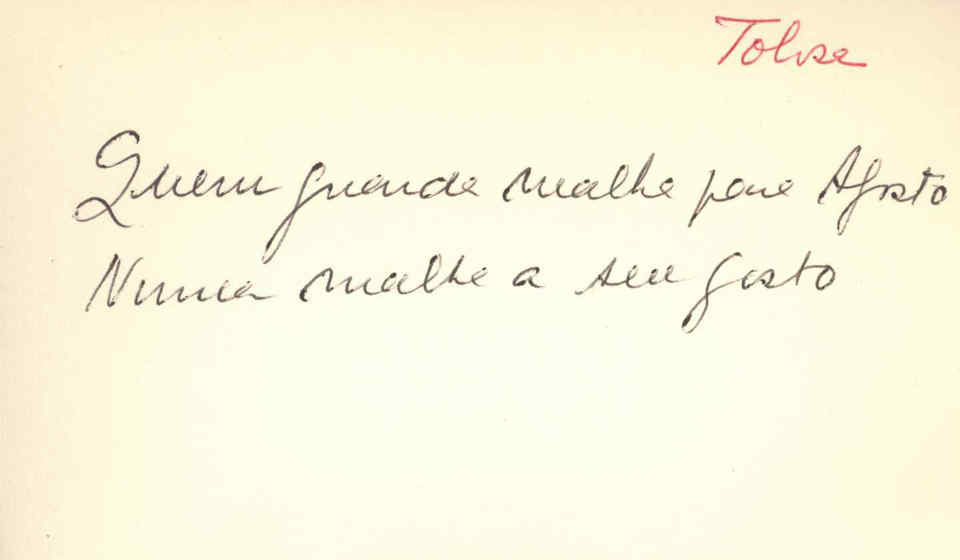 Tolosa
Quem guarda malha para Agosto
Nunca malha a seu gosto